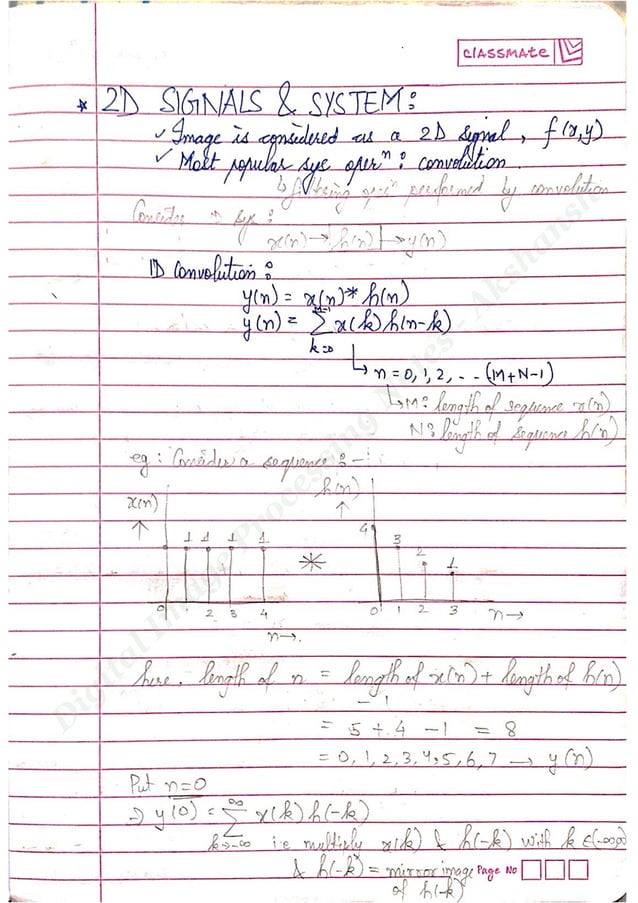 classmate
* 2D SIGNALS & SYSTEM:
✓ Image is considered as a 2D signal, f(x,y)
✓ Most popular sys operⁿ: convolution
↳ filtering operⁿ performed by convolution
Consider sys:
x(n) → h(n) → y(n)
1D Convolution:
y(n) = x(n) * h(n)
y(n) = Σ x(k) h(n-k)
M-1
k=0
↳ n = 0, 1, 2, - - (M+N-1)
↳ M: length of sequence x(n)
N: length of sequence h(n)
eg: Consider a sequence: -
x(n)
↑
1 1 1 1
0 2 3 4
n→.
*
h(n)
↑
4 3 2 1
0 1 2 3
n→
here, length of n = length of x(n) + length of h(n)
-1
= 5 + 4 - 1 = 8
= 0, 1, 2, 3, 4, 5, 6, 7 → y(n)
Put n=0
⇒ y(0) = Σ x(k) h(-k)
∞
k→-∞
i.e multiply x(k) & h(-k) with k ∈ (-∞,∞)
& h(-k) = mirror image
of h(-k)
Page No
Digital Image Processing Notes - Akshansh